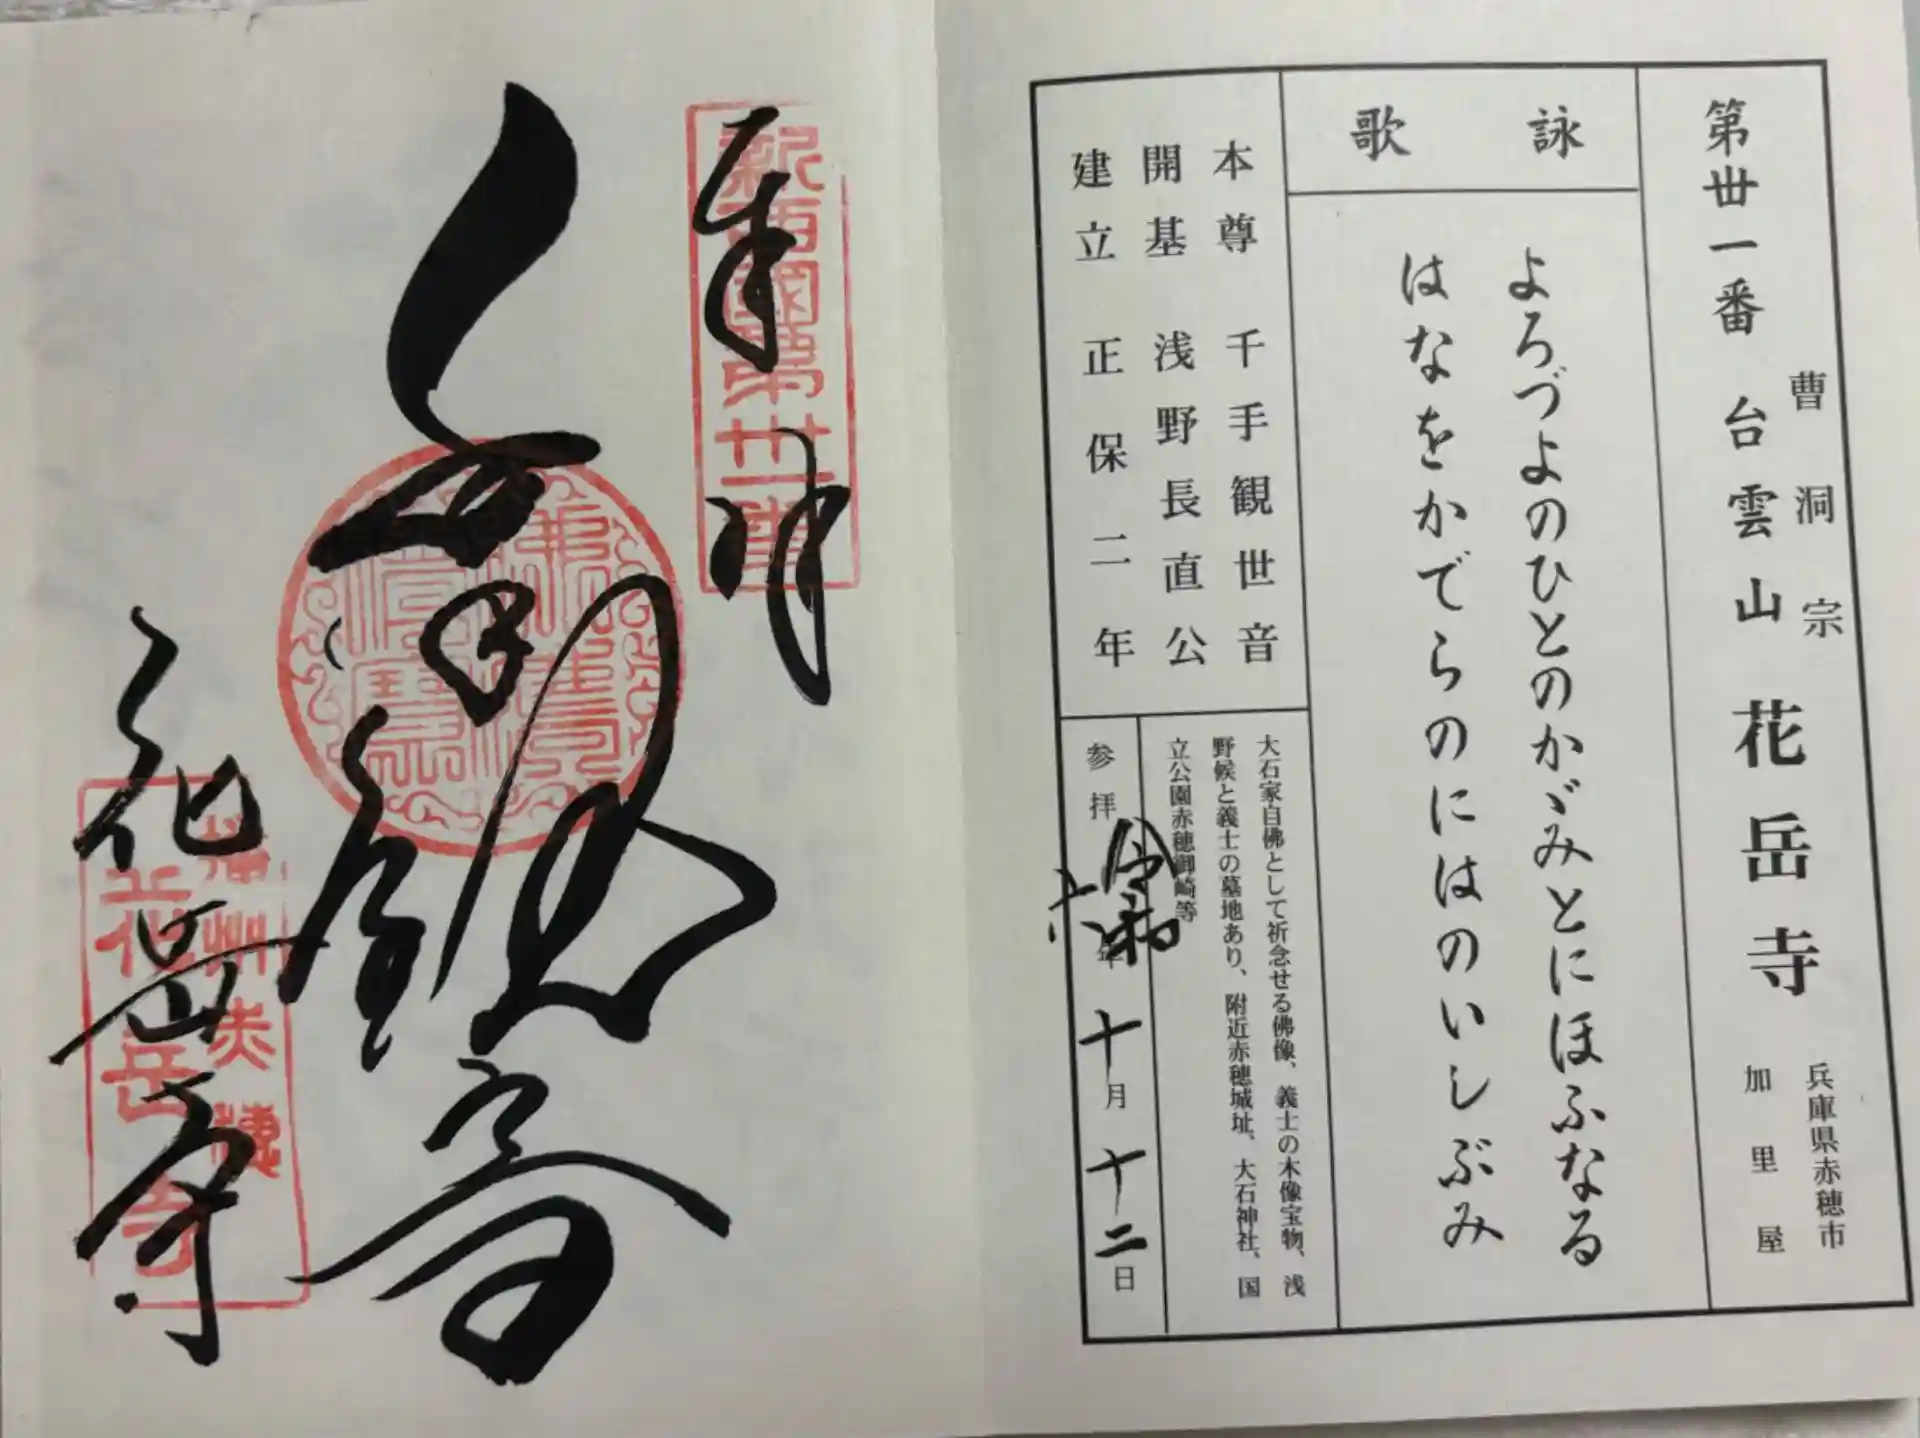 第丗一番 台雲山 花岳寺
曹洞宗
兵庫県赤穂市
加里屋
詠歌
よろづよのひとのかゞみとにほふなる
はなをかでらのにはのいしぶみ
本尊 千手観世音
開基 浅野長直公
建立 正保二年
大石家自佛として祈念せる佛像、義士の木像宝物、浅
野候と義士の墓地あり、附近赤穂城址、大石神社、国
立公園赤穂御崎等
参拝 令和六年十月十二日
奉拝
新西国第丗一番
花岳寺
播州赤穂
花岳寺